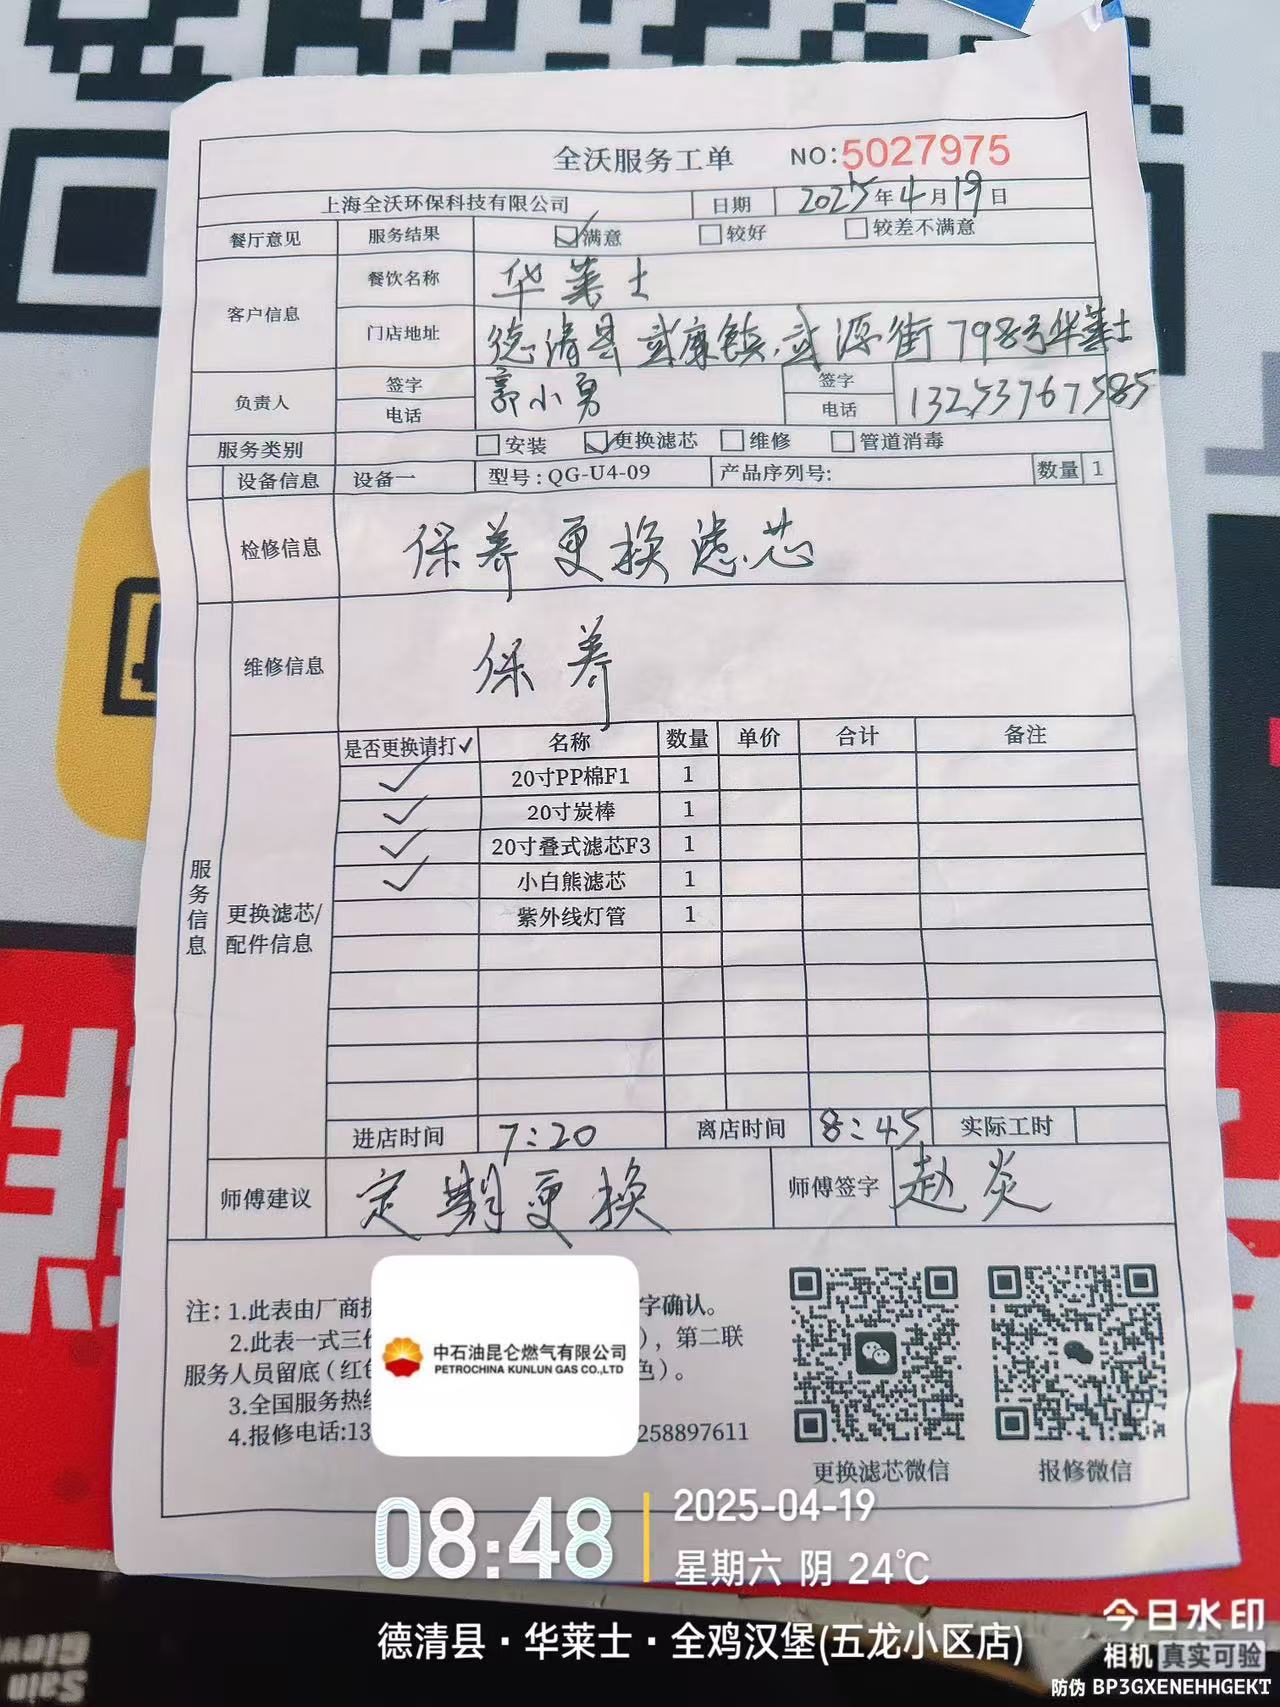 全沃服务工单 NO:5027975
上海全沃环保科技有限公司 日期 2025年4月19日
餐厅意见 服务结果 ☑满意 □较好 □较差不满意
客户信息 餐饮名称 华莱士
门店地址 德清县武康镇.武源街798号华莱士
负责人 签字 郭小勇 签字
电话 电话 13253767585
服务类别 □安装 ☑更换滤芯 □维修 □管道消毒
设备信息 设备一 型号:QG-U4-09 产品序列号: 数量 1
检修信息 保养更换滤芯
维修信息 保养
服务信息
更换滤芯/
配件信息
是否更换请打✓ 名称 数量 单价 合计 备注
✓ 20寸PP棉F1 1
✓ 20寸炭棒 1
✓ 20寸叠式滤芯F3 1
✓ 小白熊滤芯 1
紫外线灯管 1
进店时间 7:20 离店时间 8:45 实际工时
师傅建议 定期更换 师傅签字 赵炎
注: 1.此表由厂商 字确认。
2.此表一式三 ),第二联
服务人员留底(红 色)。
3.全国服务热
4.报修电话:13 258897611
中石油昆仑燃气有限公司
PETROCHINA KUNLUN GAS CO.,LTD
更换滤芯微信 报修微信
08:48 2025-04-19
星期六 阴 24℃
德清县·华莱士·全鸡汉堡(五龙小区店)
今日水印
相机 真实可验
防伪 BP3GXENEHHGEKT